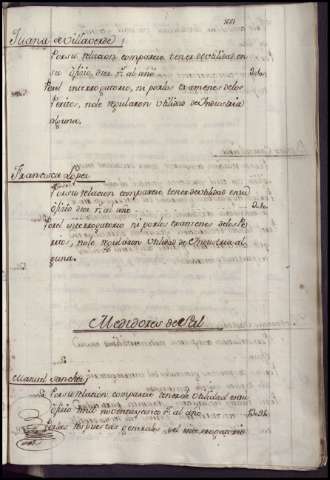 Juana de Villaverde
Por su relacion comparece tener de utilidad en
su ofizio diez r.s al año
Por el interrogatorio ni por los examenes de los
Peritos, no le regularon utilidad de Industria
alguna.
Francisca Lopez
Por su relacion comparece tener de utilidad en su
ofizio diez r.s al año
Por el interrogatorio ni por los examenes de los Pe
ritos, no le regularon utilidad de Industria al
guna.
Medidores de Sal
Manuel Sanchez
Por su relacion comparece tener de utilidad en su
ofizio mill r.s al año
Por las respuestas generales del interrogatorio